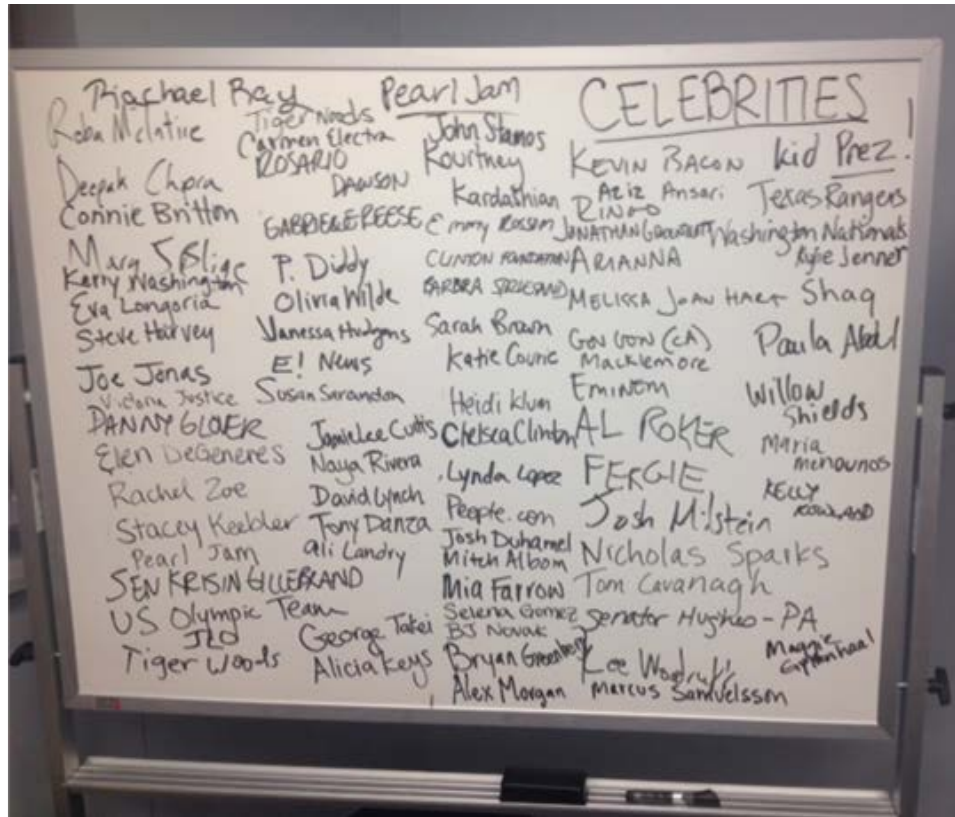 CELEBRITIES
Rachael Ray
Reba McIntire
Deepak Chpra
Connie Britton
Mary J Blige
Kerry Washington
Eva Longoria
Steve Harvey
Joe Jonas
Victoria Justice
DANNY GLOVER
Ellen DeGeneres
Rachel Zoe
Stacey Keebler
Pearl Jam
SEN KRISIN GILLEBRAND
US Olympic Team
JLO
Tiger Woods
Tiger Woods
Carmen Electra
ROSARIO
DAWSON
GABRIELLE REESE
P. Diddy
Olivia Wilde
Vanessa Hudgens
E! News
Susan Sarandon
Jamie Lee Curtis
Naya Rivera
David Lynch
Tony Danza
Ali Landry
George Takei
Alicia Keys
Pearl Jam
John Stamos
Kourtney
Kardathian
Emmy Rossum
CLINTON FOUNDATION
BARBRA STREISAND
Sarah Brown
Katie Couric
Heidi Klum
Chelsea Clinton
Lynda Lopez
People.com
Josh Duhamel
Mitch Albom
Mia Farrow
Selena Gomez
BJ Novak
Bryan Greenberg
Alex Morgan
KEVIN BACON
Aziz Ansari
RINGO
JONATHAN
ARIANNA
MELISSA JOAN HART
Macklemore
Eminem
AL ROKER
FERGIE
Josh Milstein
Nicholas Sparks
Tom Cavanagh
Senator Hughes - PA
Lee Woodruff
Marcus Samuelsson
Kid Prez!
Texas Rangers
Washington Nationals
Kylie Jenner
Shaq
Paula Abdul
Willow
Shields
Maria
Menounos
KELLY
ROWLAND
Maggie
Gyllenhaal